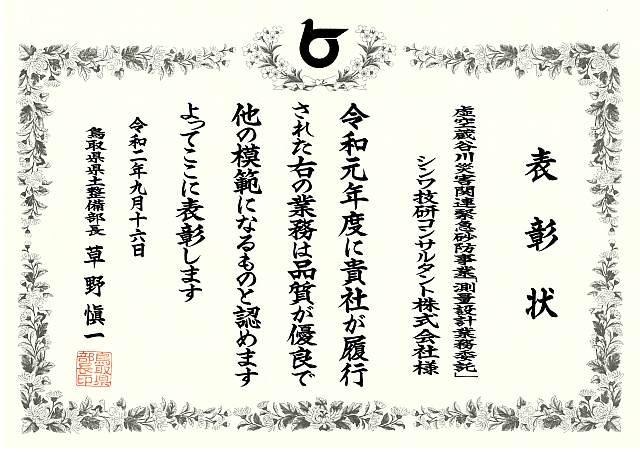 表彰状
虚空蔵谷川災害関連緊急砂防事業「測量設計業務委託」
シンワ技研コンサルタント株式会社様
令和元年度に貴社が履行
された右の業務は品質が優良で
他の模範になるものと認めます
よってここに表彰します
令和二年九月十六日
鳥取県県土整備部長 草野愼一
鳥取県
部長印